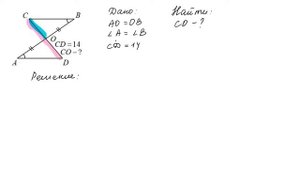 C
B
O
CD = 14
CO - ?
A
D
Дано:
AO = OB
∠A = ∠B
CD = 14
Найти:
CD - ?
Решение: